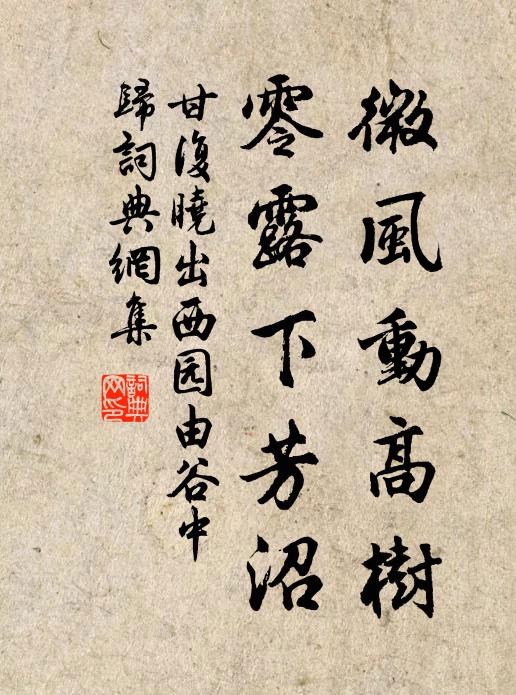 微風動高樹
零露下芳沼
甘復曉出西园由谷中
歸詞典網集
詞典网印